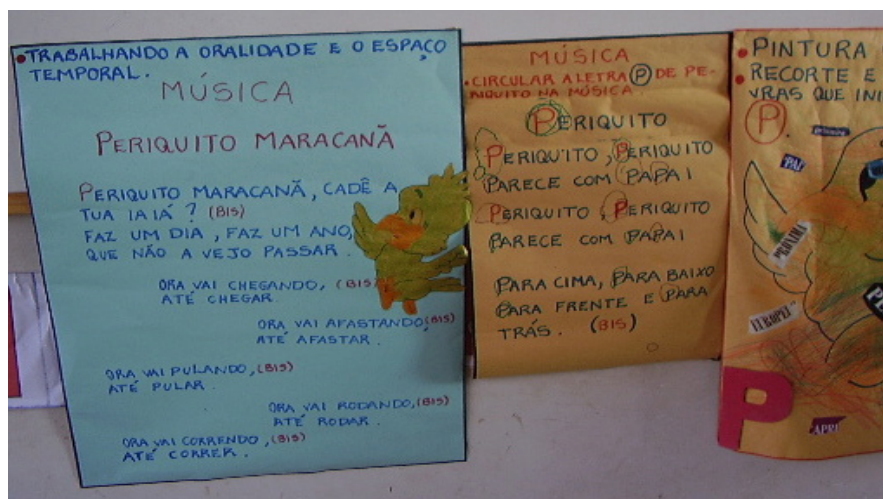 • TRABALHANDO A ORALIDADE E O ESPAÇO
TEMPORAL.
MÚSICA
PERIQUITO MARACANÃ
PERIQUITO MARACANÃ, CADÊ A
TUA IAIÁ? (BIS)
FAZ UM DIA, FAZ UM ANO,
QUE NÃO A VEJO PASSAR.
ORA VAI CHEGANDO, (BIS)
ATÉ CHEGAR.
ORA VAI AFASTANDO, (BIS)
ATÉ AFASTAR.
ORA VAI PULANDO, (BIS)
ATÉ PULAR.
ORA VAI RODANDO, (BIS)
ATÉ RODAR.
ORA VAI CORRENDO, (BIS)
ATÉ CORRER.
MÚSICA
• CIRCULAR A LETRA P DE PE-
RIQUITO NA MÚSICA.
PERIQUITO
PERIQUITO, PERIQUITO
PARECE COM PAPAI
PERIQUITO, PERIQUITO
PARECE COM PAPAI
PARA CIMA, PARA BAIXO
PARA FRENTE E PARA
TRÁS. (BIS)
• PINTURA
• RECORTE E
VRAS QUE INI
P.
PAÍ
PRÓXIMA
P